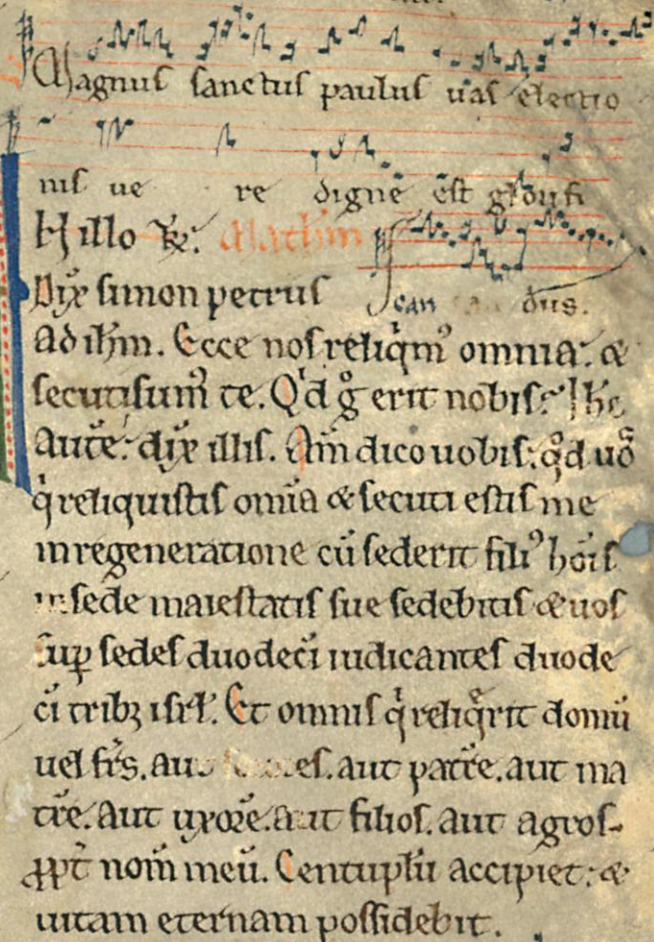 Magnus sanctus paulus uas electio
nis ue re digne ē est glorifi
H illo R̄. Mathm
Dix̄ simon petrus Ioan dus.
ad ih̄m. Ecce nos reliq̄mꝰ omnia: &
secuti sumꝰ te. Qͥd g̊ erit nobis? Ih̄c
autē: dix̄ illis. Am̄ dico uobis: qd̄ uō
qͥ reliquistis om̄ia & secuti estis me
in regeneratione cū sederit filiꝰ hōis
in sede maiestatis sue sedebitis & uos
sup̱ sedes duodecī iudicantes duode
cī tribꝫ isrl̄. Et omnis qͥ reliq̄rit domū
uel fr̄s. au es. aut patrē. aut ma
trē. aut uxorē. aut filios. aut agros
ꝓpt̄ nom̄ meū. Centuplū accipiet: &
uitam eternam possidebit.